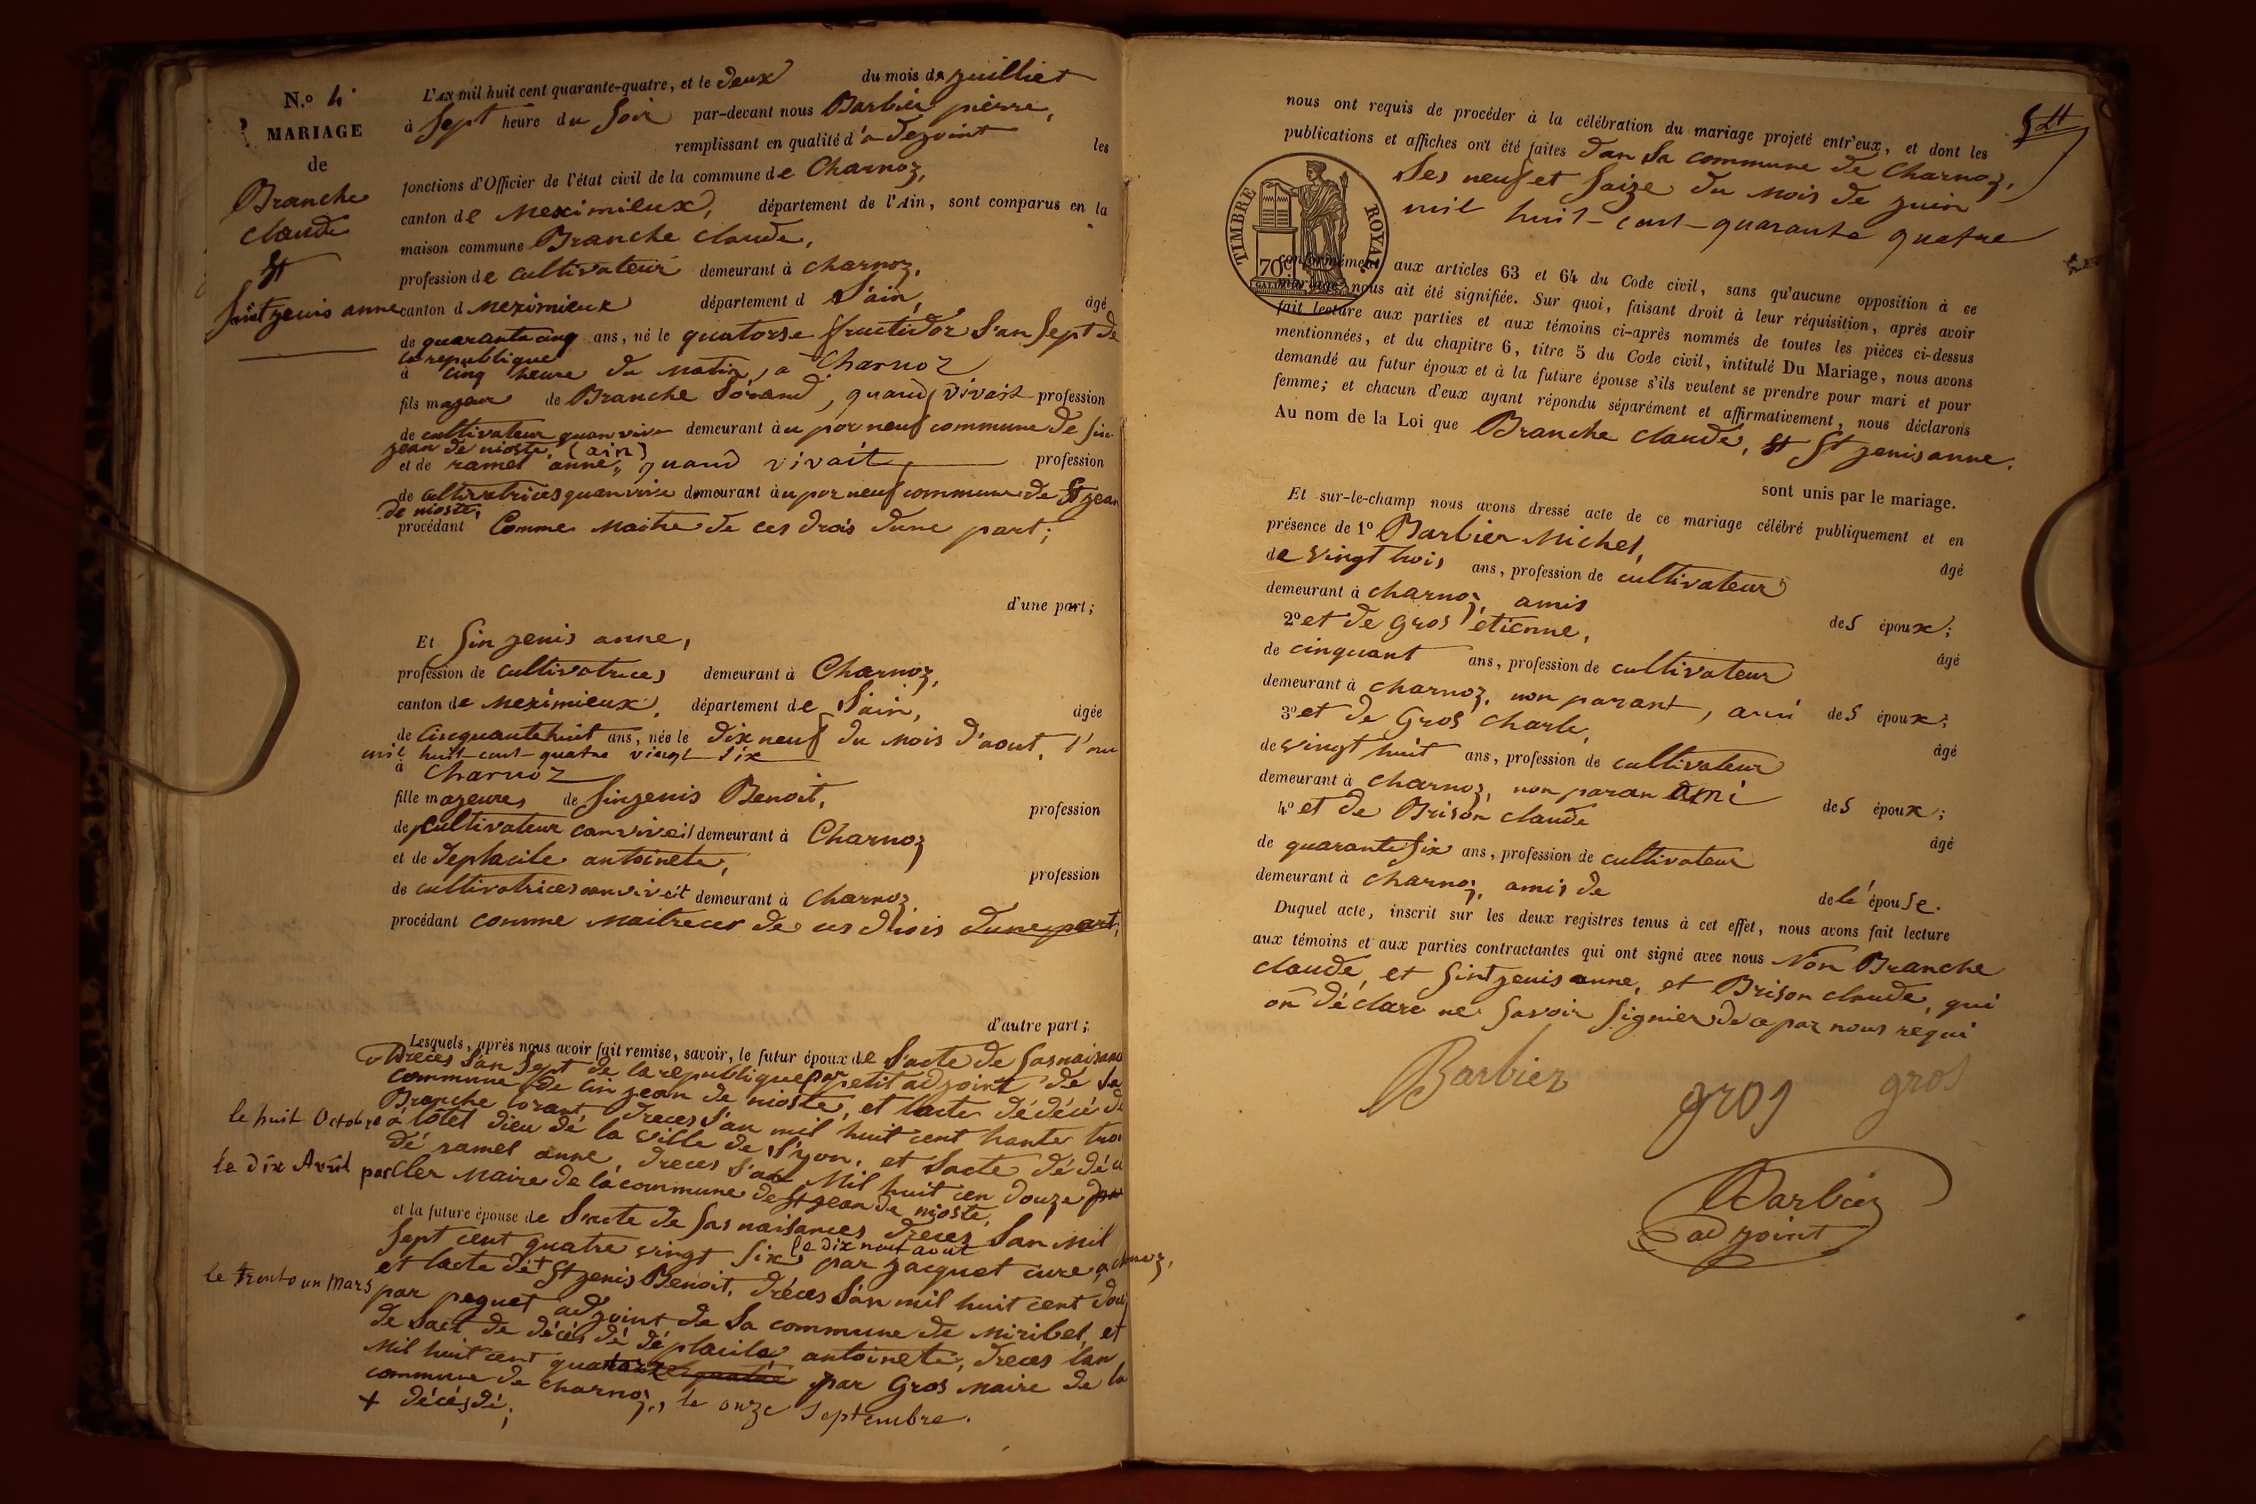 N.º 4.
MARIAGE
de
Branche
claude
et
sintjenis anne
L'AN mil huit cent quarante-quatre, et le deux du mois de juilliet
à sept heure du soir par-devant nous Barbier pierre,
remplissant en qualité d'adejoint les
fonctions d'Officier de l'état civil de la commune de Charnoz,
canton de meximieux, département de l'Ain, sont comparus en la
maison commune Branche claude,
profession de cultivateur demeurant à charnoz,
canton d meximieux département d l'ain, âgé
de quarante cinq ans, né le quatorse fructidor l'an sept de
la republique
à cinq heure du matin, a Charnoz
fils majeur de Branche lorand, quand vivait profession
de cultivateur quan vivé demeurant à u por neuf commune de sin
jean de nioste, (ain)
et de ramel anne, quand vivait, profession
de cultivatrices quan vivé demeurant àu por neuf commune de St jean
de nioste,
procédant Comme maitre de ces drois dune part;
d'une part;
Et sin jenis anne,
profession de cultivatrices demeurant à Charnoz,
canton de meximieux, département de l'ain, âgée
de cinquante huit ans, née le dix neuf du mois d'aout, l'an
mil huit-cent-quatre vingt six
à Charnoz
fille majeures de sinjenis Benoit, profession
de cultivateur can vivait demeurant à Charnoz
et de deplacile antoinete, profession
de cultivatrices can vivét demeurant à charnoz
procédant comme maitreces de ces drois dune part;
d'autre part;
Lesquels, après nous avoir fait remise, savoir, le futur époux de l'acte de sas naisance
dreces l'an sept de la republique par petit adjoint de la
commune de sin jean de nioste, et lacte dédécé de
Branche lorant dreces l'an mil huit cent trante trois
le huit Octobre à lôtel dieu dé la ville de l'yon, et lacte dé dé cé
dé ramel anne, dreces l'an mil huit cen douze
le dix Avril par Cler maire de la commune de St jean de nioste,
et la future épouse de l'acte de sas naisances dreces l'an mil
sept cent quatre vingt six le dix neuf aout par jacquet cure a charnoz,
et lacte dé+ St jenis Benoit, dréces l'an mil huit cent
le trente un Mars par peguet adjoint de la commune de miribel, et
de lact de décés dé déplacile antoinete, dreces l'an
mil huit cent quatorze par Gros maire de la
commune de charnoz, le onze septembre.
+ décés dé;
nous ont requis de procéder à la célébration du mariage projeté entr'eux, et dont les
publications et affiches ont été faites dan la commune de Charnoz,
les neuf et saize du mois de juin
mil huit-cent-quarante quatre
TIMBRE ROYAL
70c
conformément aux articles 63 et 64 du Code civil, sans qu'aucune opposition à ce
mariage nous ait été signifiée. Sur quoi, faisant droit à leur réquisition, après avoir
fait lecture aux parties et aux témoins ci-après nommés de toutes les pièces ci-dessus
mentionnées, et du chapitre 6, titre 5 du Code civil, intitulé Du Mariage, nous avons
demandé au futur époux et à la future épouse s'ils veulent se prendre pour mari et pour
femme; et chacun d'eux ayant répondu séparément et affirmativement, nous déclarons
Au nom de la Loi que Branche claude, et St jenis anne.
sont unis par le mariage.
Et sur-le-champ nous avons dressé acte de ce mariage célébré publiquement et en
présence de 1º Barbier Michel, âgé
de vingt trois ans, profession de cultivateur
demeurant à charnoz, amis des époux;
2º et de Gros etienne, âgé
de cinquant ans, profession de cultivateur
demeurant à charnoz, non parant, ami des époux;
3º et de Gros charle, âgé
de vingt huit ans, profession de cultivateur
demeurant à charnoz, non paran ami des époux;
4º et de Brison claude âgé
de quarante six ans, profession de cultivateur
demeurant à charnoz, amis de de lé épouse.
Duquel acte, inscrit sur les deux registres tenus à cet effet, nous avons fait lecture
aux témoins et aux parties contractantes qui ont signé avec nous Non Branche
claude, et sintjenis anne, et Brison claude, qui
on déclare ne savoir signier de ce par nous réqui
Barbier gros gros
Barbier
adjoint